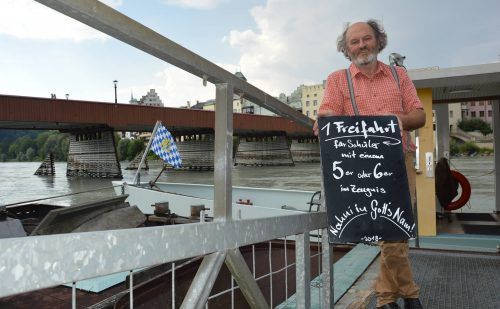 1 Freifahrt
für Schüler
mit einem
5er oder 6er
im Zeugnis
Nahui in Gott's Nam!
-2018-